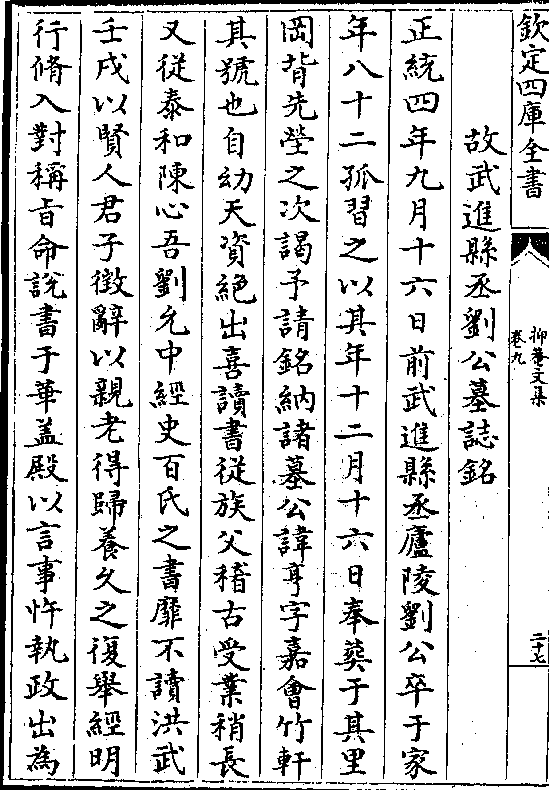 欽定四庫全書
抑菴文集
卷九
二十七
故武進縣丞劉公墓誌銘
正統四年九月十六日前武進縣丞廬陵劉公卒于家
年八十二孤習之以其年十二月十六日奉葬于其里
岡背先塋之次謁予請銘納諸墓公諱亨字嘉會竹軒
其號也自幼天資絕出喜讀書從族父稽古受業稍長
又從泰和陳心吾劉允中經史百氏之書靡不讀洪武
壬戌以賢人君子徴辭以親老得歸養久之復舉經明
行脩入對稱旨命説書于華盖殿以言事忤執政出為